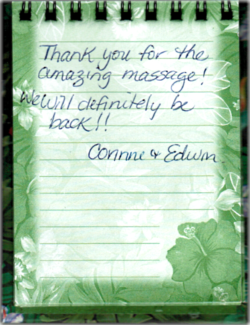 Thank you for the
amazing massage!
We will definitely be
back!!
Corinne & Edwin